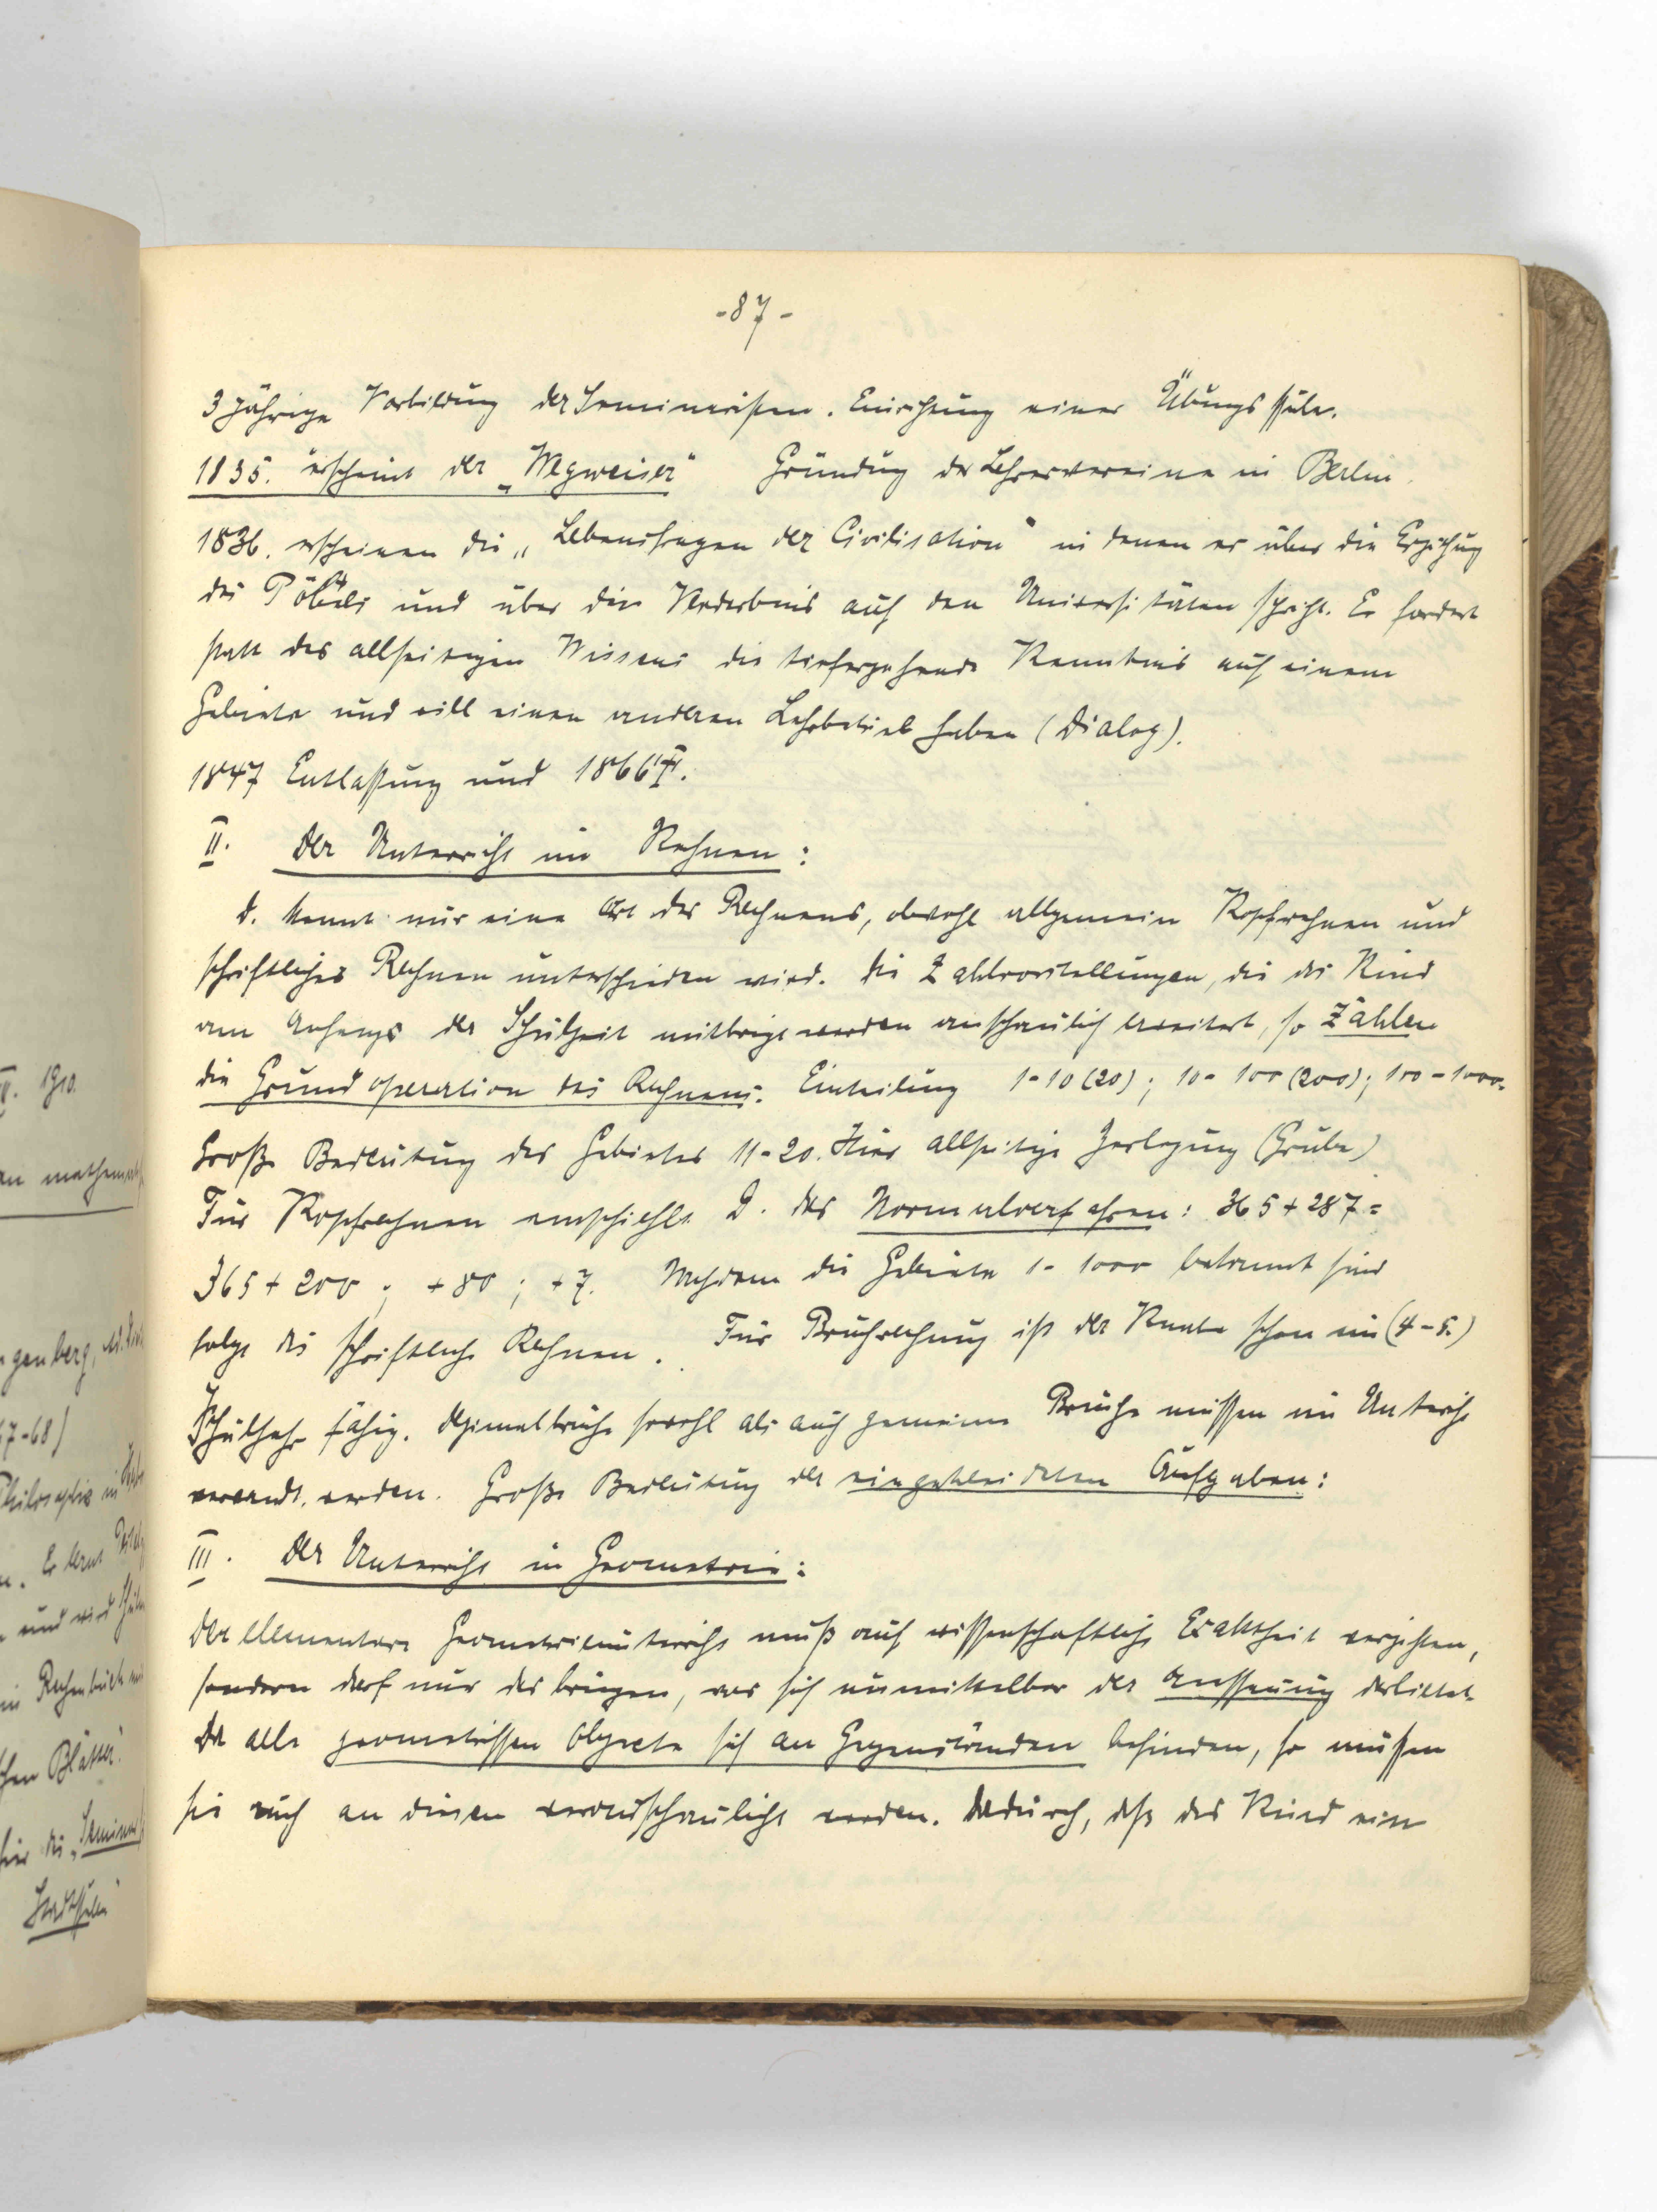 -87-
3 jährige Vorbildung der Seminaristen. Einrichtung einer Übungsschule.
1835. erscheint der „Wegweiser" Gründung der Lehrervereine in Berlin.
1836. erscheinen die „Lebensfragen der Civilisation" in denen er über die Erziehung
des Pöbels und über die Verderbnis auf den Universitäten spricht. Er fordert
statt des allseitigen Wissens die tiefergehende Kenntnis auf einem
Gebiete und will einen anderen Lehrbetrieb haben (Dialog).
1847 Entlassung und 1866 †.
II. Der Unterricht im Rechnen:
D. kennt nur eine Art des Rechnens, obwohl allgemein Kopfrechnen und
schriftliches Rechnen unterschieden wird. Die Zahlvorstellungen, die das Kind
am Anfange der Schulzeit mitbringt werden anschaulich erweitert, so Zählen
die Grundoperation des Rechnens. Einteilung 1-10(20); 10-100(200); 100-1000.
Große Bedeutung des Gebietes 11-20. Hier allseitige Zerlegung (Grube)
Für Kopfrechnen empfiehlt D. das Normalverfahren: 365+287=
365+200; +80; +7. Nachdem die Gebiete 1-1000 bekannt sind
folgt das schriftliche Rechnen. Für Bruchrechnung ist der Knabe schon im (4-5.)
Schuljahr fähig. Dezimalbrüche sowohl als auch gemeine Brüche müssen im Unterricht
verwandt werden. Große Bedeutung der eingekleideten Aufgaben:
III. Der Unterricht in Geometrie:
Der elementare Geometrieunterricht muß auf wissenschaftliche Exaktheit verzichten,
sondern darf nur das bringen, was sich unmittelbar der Anschauung darbietet.
Da alle geometrischen Objecte sich an Gegenständen befinden, so müssen
sie auch an diesen veranschaulicht werden. Dadurch, daß das Kind eine